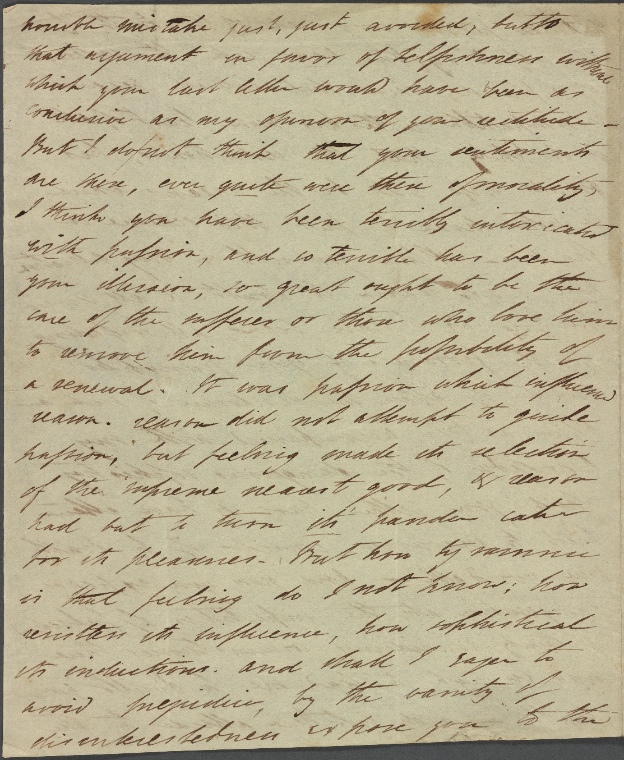 horrible mistake just, just avoided, but to
that argument in favor of selfishness without
which your last letter would have been as
conclusive as my opinion of your rectitude –
But I do not think that your sentiments
are these, ever quite were these of morality,
I think you have been terribly intoxicated
with passion, and so terrible has been
your illusion, so great ought to be the
care of the sufferer or those who love him
to remove him from the possibility of
a renewal. It was passion which influenced
reason. reason did not attempt to guide
passion, but feeling made its selection
of the supreme nearest good, & reason
had but to turn its pander cater
for its pleasures – But how tyrannic
is that feeling do I not know; how
resistless its influence, how sophistical
its inductions. and shall I eager to
avoid prejudice, by the vanity of
disinterestedness expose you to the